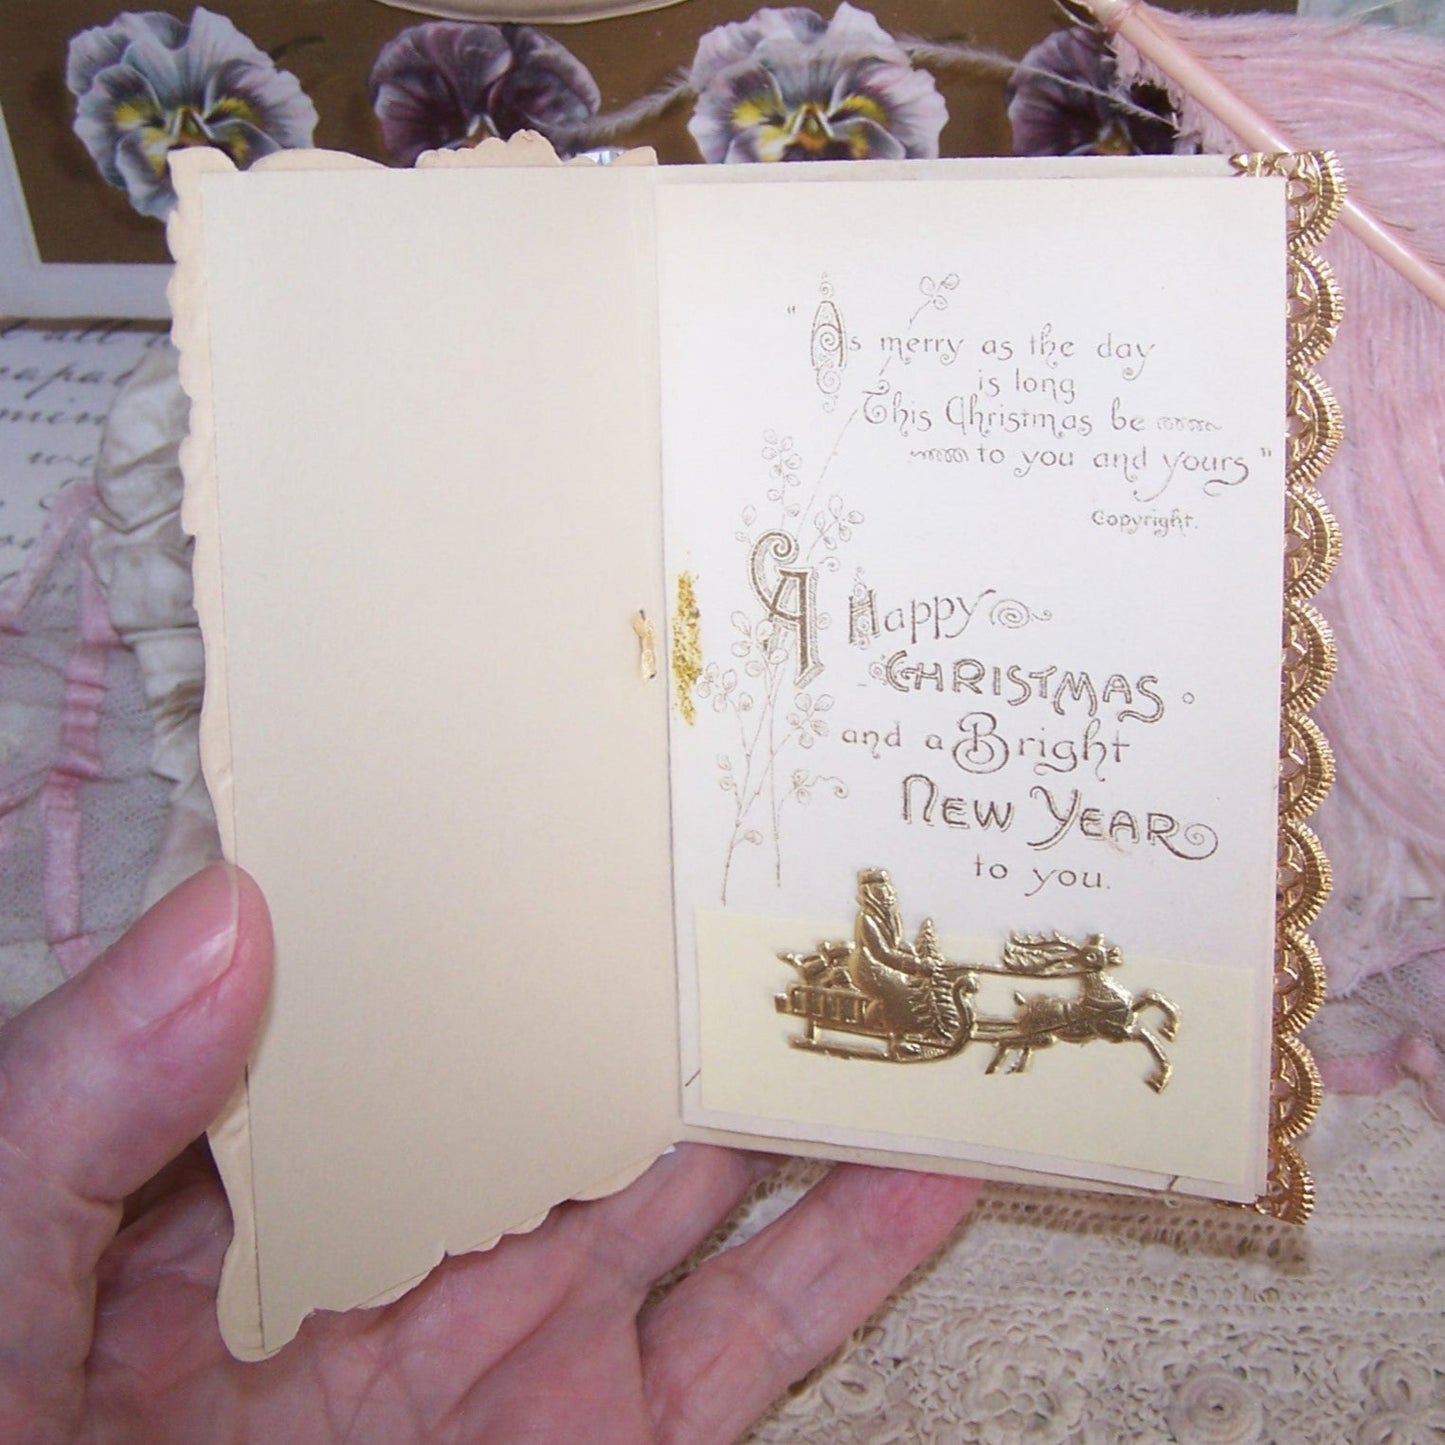 "As merry as the day
is long
This Christmas be
to you and yours"
Copyright.
A Happy
CHRISTMAS
and a Bright
NEW YEAR
to you.